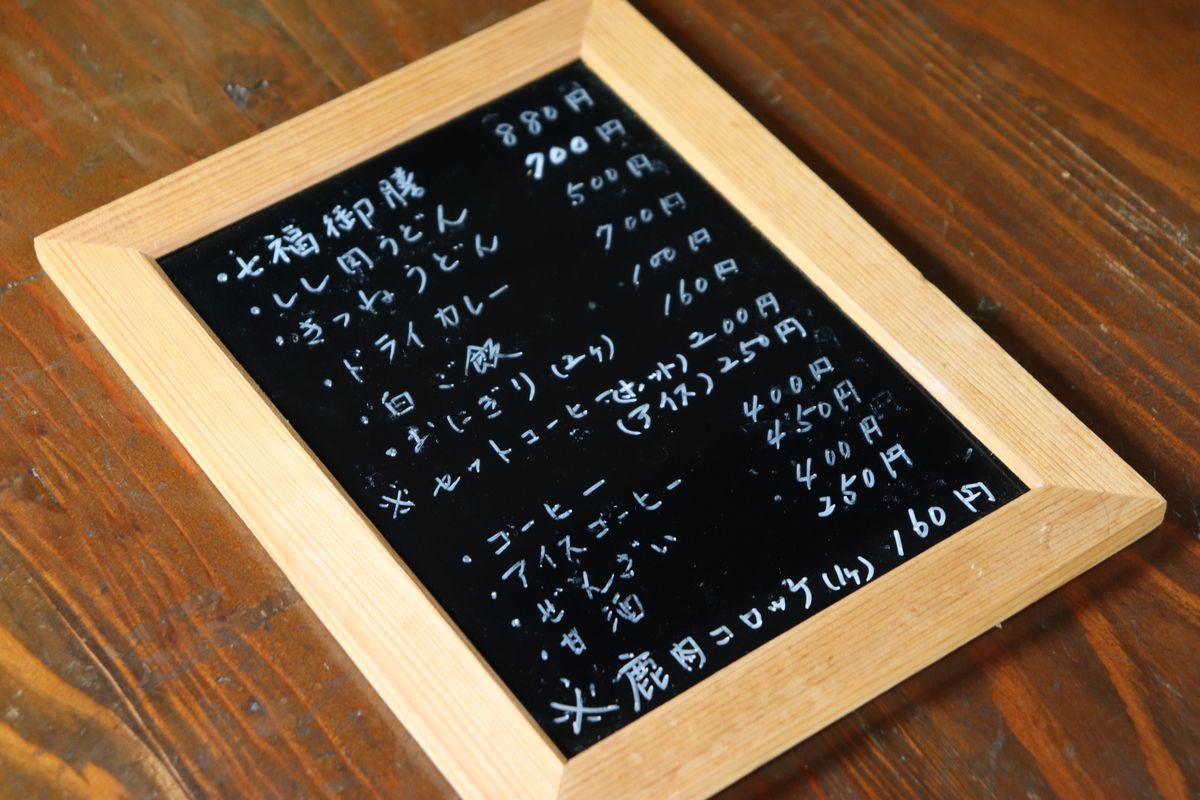 ・七福御膳 880円
・しし肉うどん 700円
・きつねうどん 500円
・ドライカレー 700円
・白ご飯 100円
・おにぎり(2ケ) 160円
※セットコーヒー(ホット)200円
(アイス)250円
・コーヒー 400円
・アイスコーヒー 450円
・ぜんざい 400円
・甘酒 250円
※鹿肉コロッケ(1ケ)160円